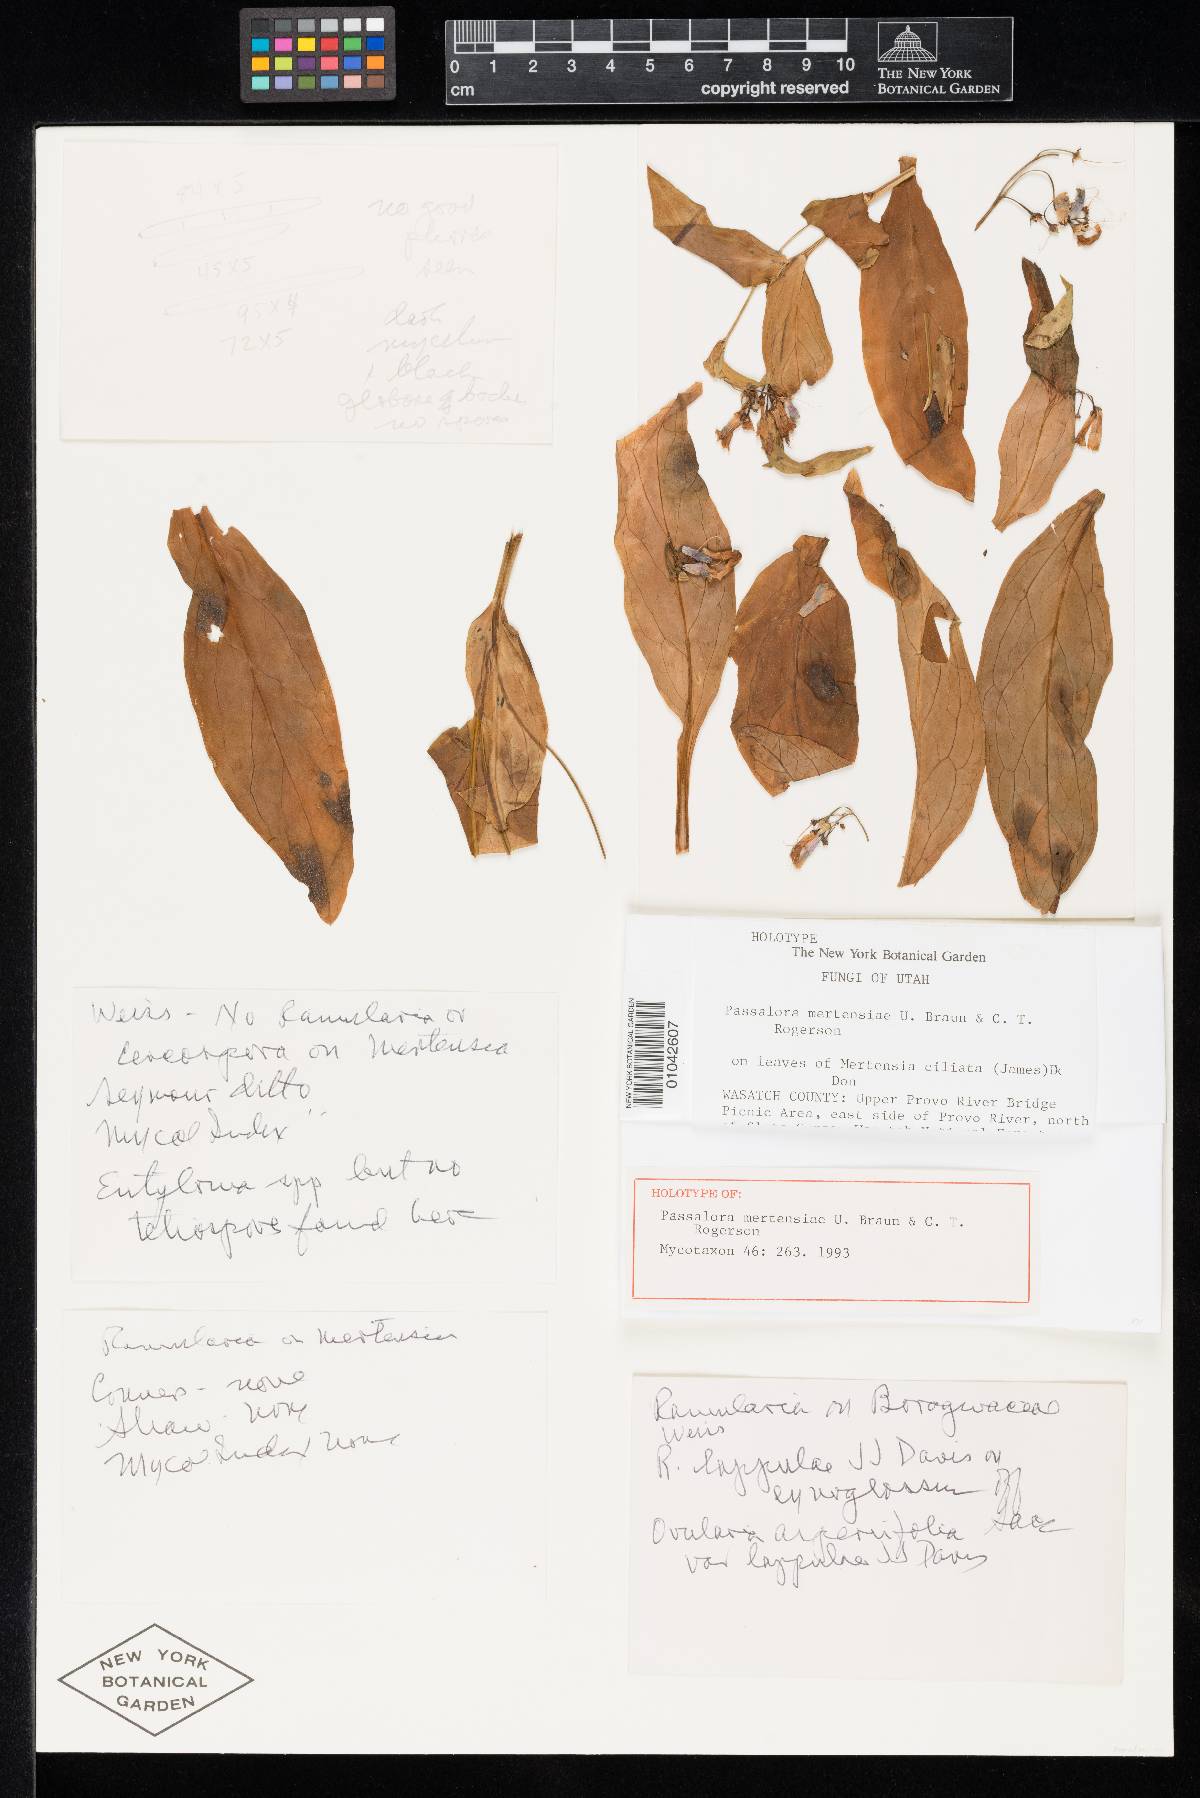 0 1 2 3 4 5 6 7 8 9 10
cm
copyright reserved
THE NEW YORK
BOTANICAL GARDEN
84 x 5
45 x 5
95 x 4
72 x 5
no good
seen
dark
mycelium
black
globose bodies
no spores
HOLOTYPE
The New York Botanical Garden
FUNGI OF UTAH
Passalora mertensiae U. Braun & C. T.
Rogerson
on leaves of Mertensia ciliata (James)
Don
WASATCH COUNTY: Upper Provo River Bridge
Picnic Area, east side of Provo River, north
NEW YORK BOTANICAL GARDEN
01042607
HOLOTYPE OF:
Passalora mertensiae U. Braun & C. T.
Rogerson
Mycotaxon 46: 263. 1993
Weiss - No Ramularia or
Cercospora on Mertensia
Seymour ditto
Mycol Index "
Entyloma spp but no
teliospores found here
Ramularia on Mertensia
Conners - none
Shaw - none
Mycol Index none
Ramularia on Boraginaceae
Weiss
R. lappulae JJ Davis on
cynoglossum
Ovularia asperifolia Sacc
var lappulae JJ Davis
NEW YORK
BOTANICAL
GARDEN